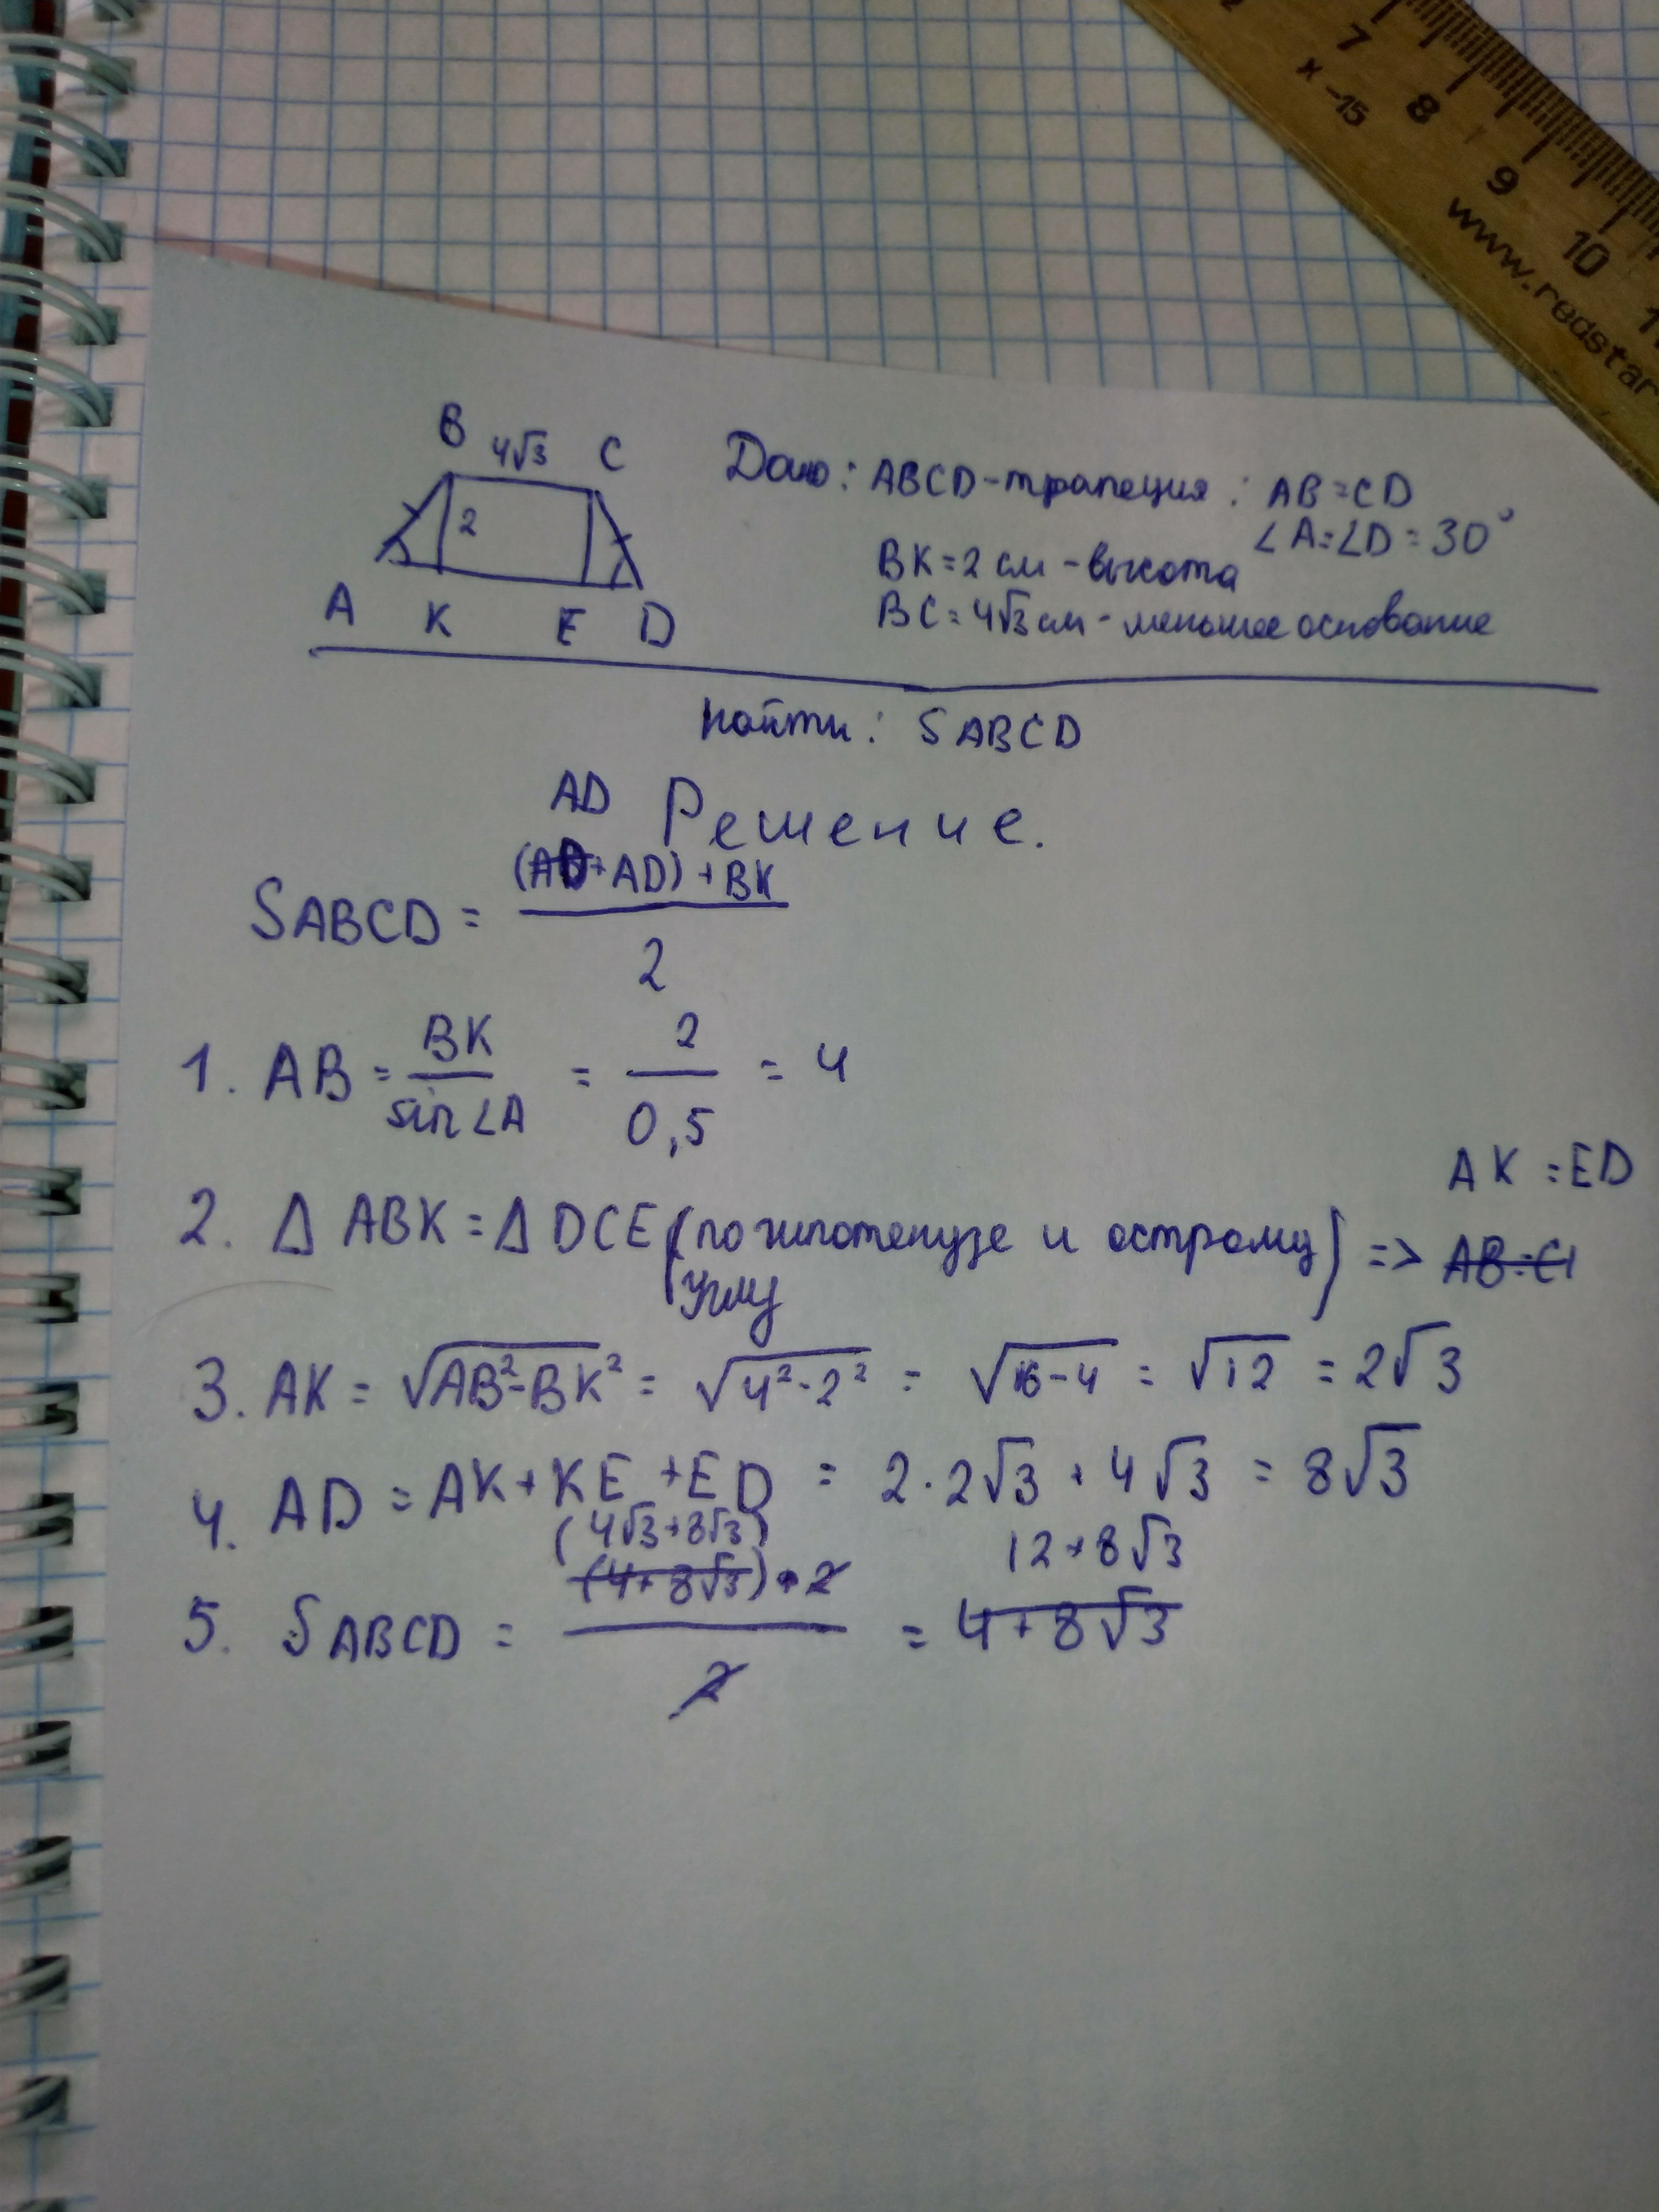 7
x -15
8
9
10
www.redstar
B 4√3 C
2
A K E D
Дано: ABCD-трапеция: AB=CD
∠A=∠D=30°
BK=2 см - высота
BC=4√3 см - меньшее основание
Найти: SABCD
AD Решение.
SABCD = ((AD+AD)+BK)/2
1. AB = BK/sin∠A = 2/0,5 = 4
2. Δ ABK = Δ DCE (по гипотенузе и острому углу) => AK = ED
3. AK = √AB²-BK² = √4²-2² = √16-4 = √12 = 2√3
4. AD = AK+KE+ED = 2·2√3+4√3 = 8√3
(4√3+8√3) 12+8√3
5. SABCD = (4+8√3)·2/2 = 4+8√3